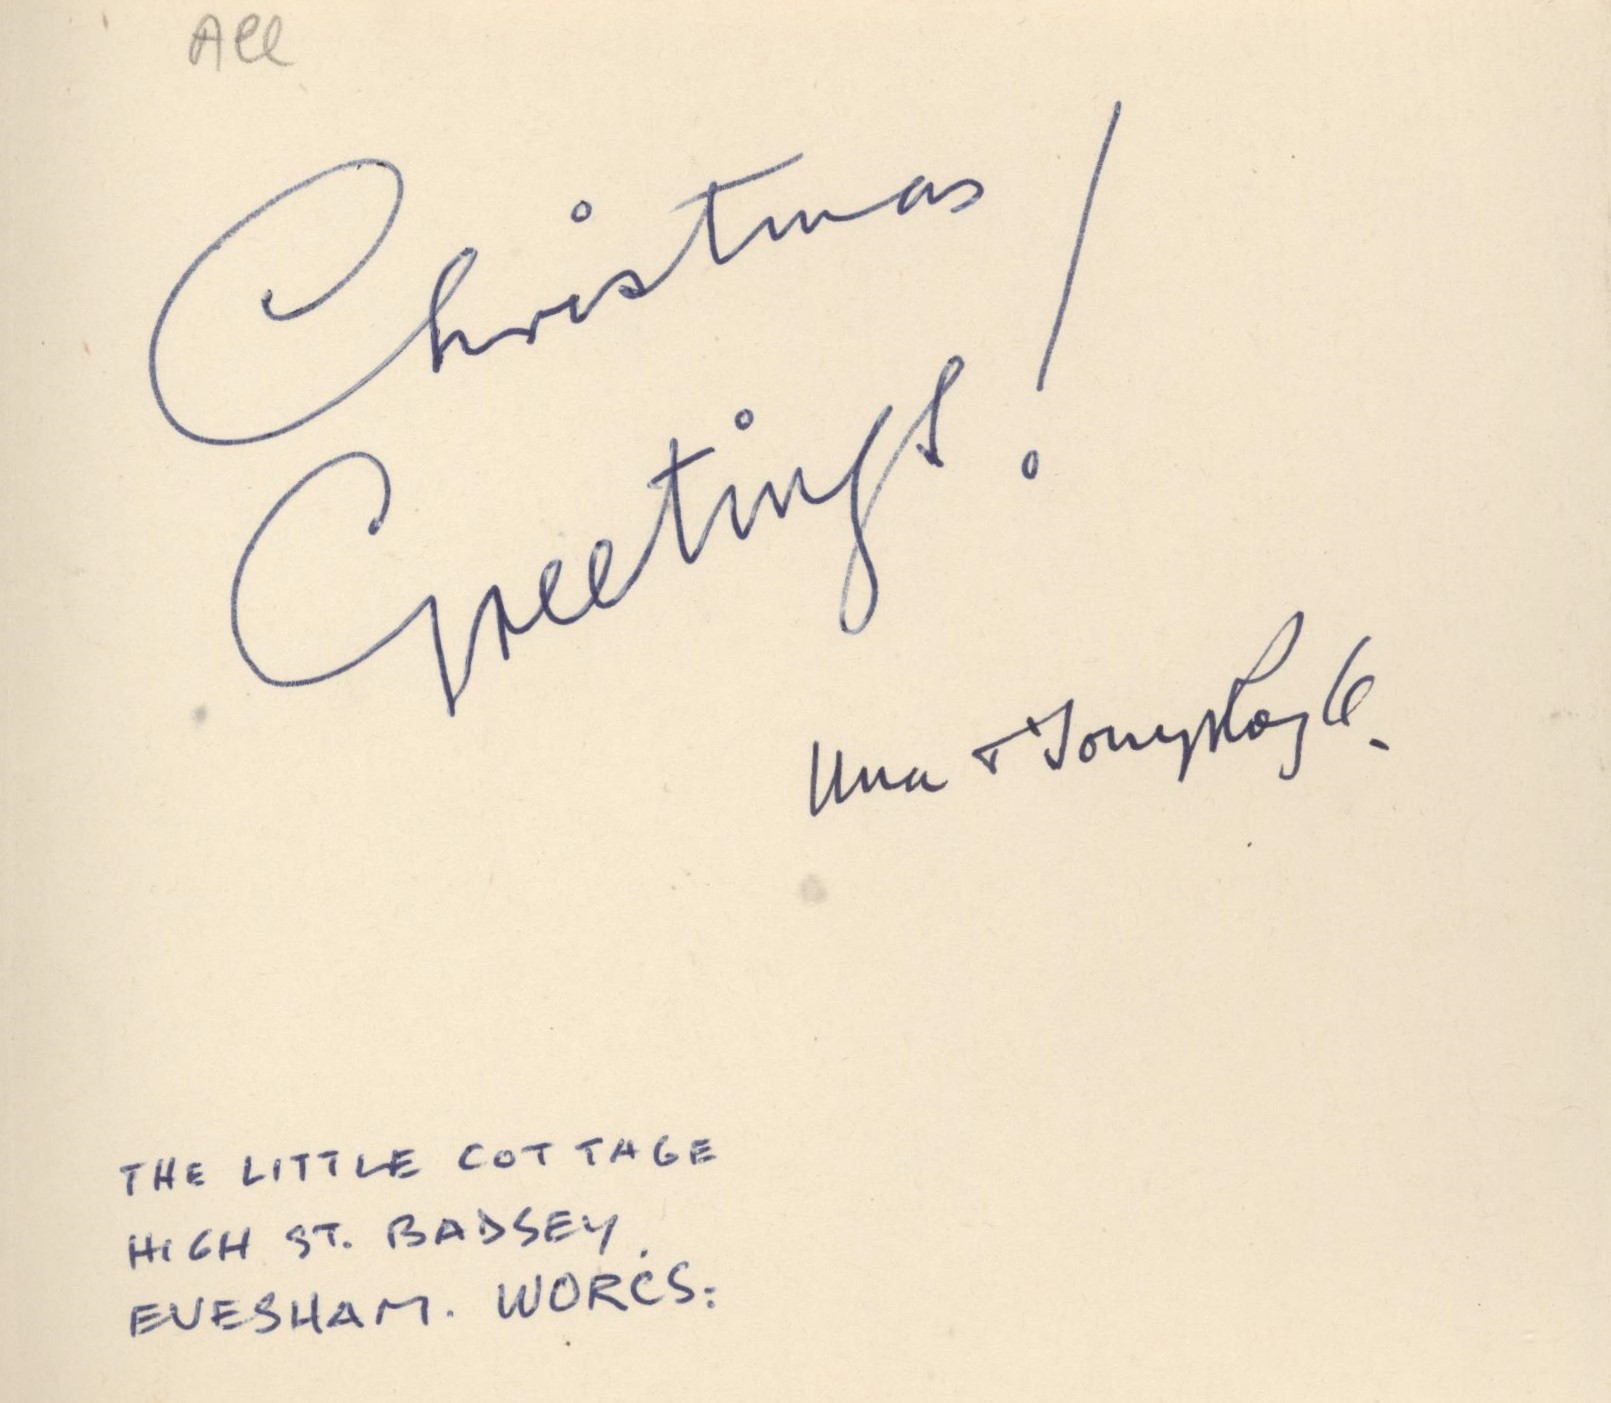 All
Christmas
Greetings!
Una & Tony Royle.
THE LITTLE COTTAGE
HIGH ST. BADSEY.
EVESHAM. WORCS: